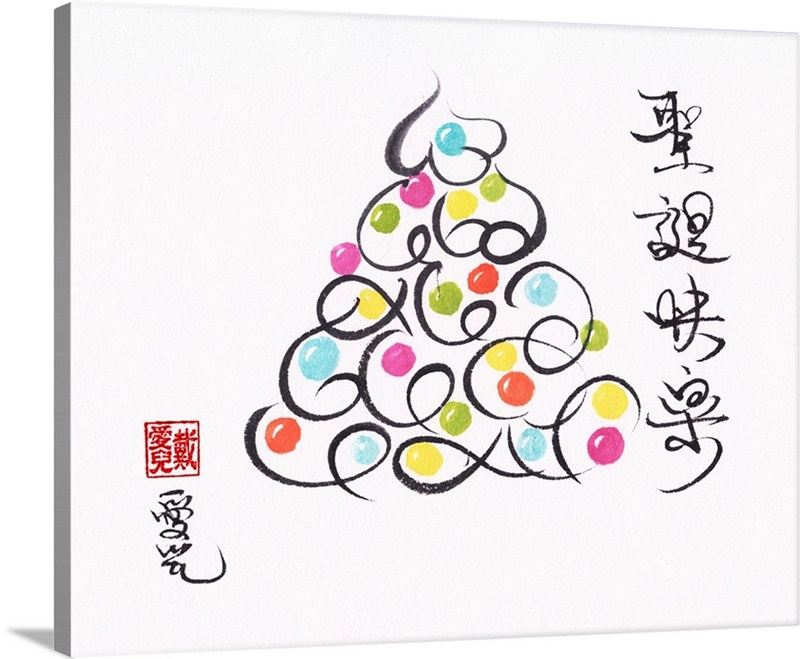 聖誕快樂
戴愛兒
愛兒